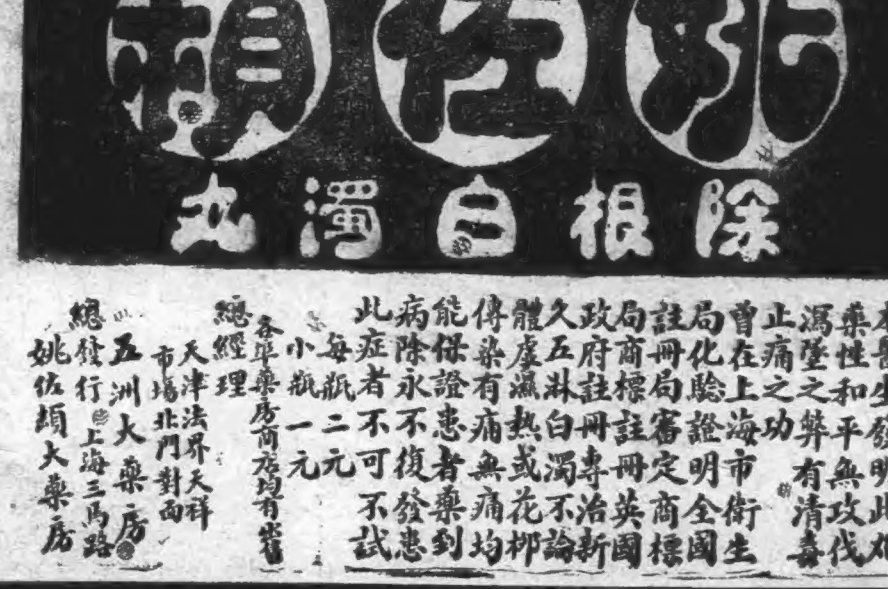 姚佐頓
除根白濁丸
藥性和平無攻伐
瀉墜之弊有清毒
止痛之功
曾在上海市衛生
局化驗證明全國
註冊局審定商標
局商標註冊英國
政府註冊專治新
久五淋白濁不論
體虛濕熱或花柳
傳染有痛無痛均
能保證患者藥到
病除永不復發患
此症者不可不試
每瓶二元
小瓶一元
各埠藥房商店均有出售
總經理
天津法界天祥
市場北門對面
五洲大藥房
總發行
上海三馬路
姚佐頓大藥房